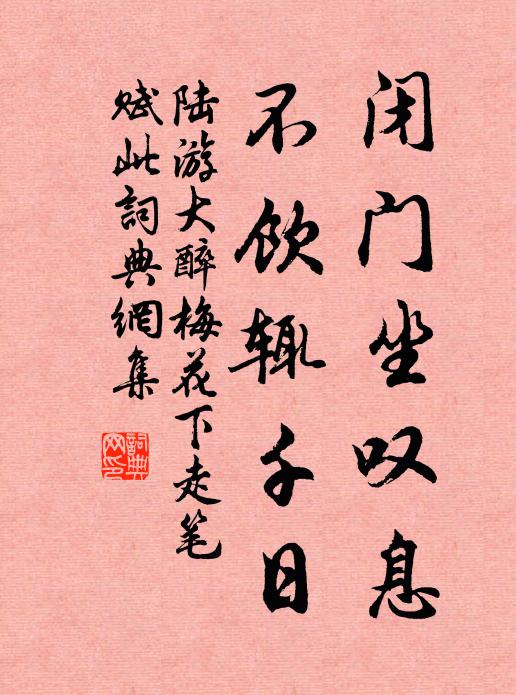 闭门坐叹息
不饮辄千日
陆游大醉梅花下走笔
赋此詞典網集
詞典网印